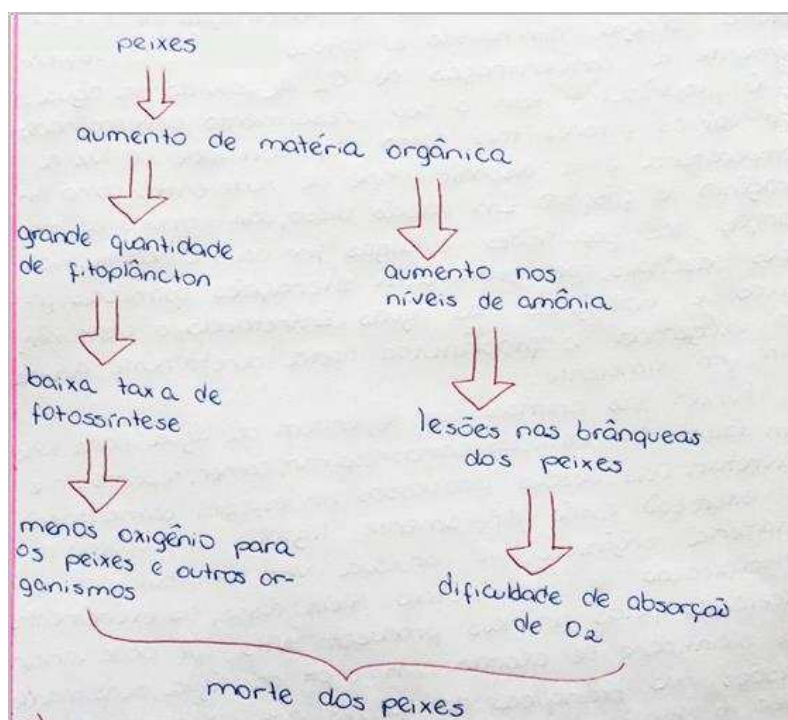 peixes
aumento de matéria orgânica
grande quantidade
de fitoplâncton
baixa taxa de
fotossíntese
menos oxigênio para
os peixes e outros or-
ganismos
aumento nos
níveis de amônia
lesões nas brânqueas
dos peixes
dificuldade de absorção
de O₂
morte dos peixes